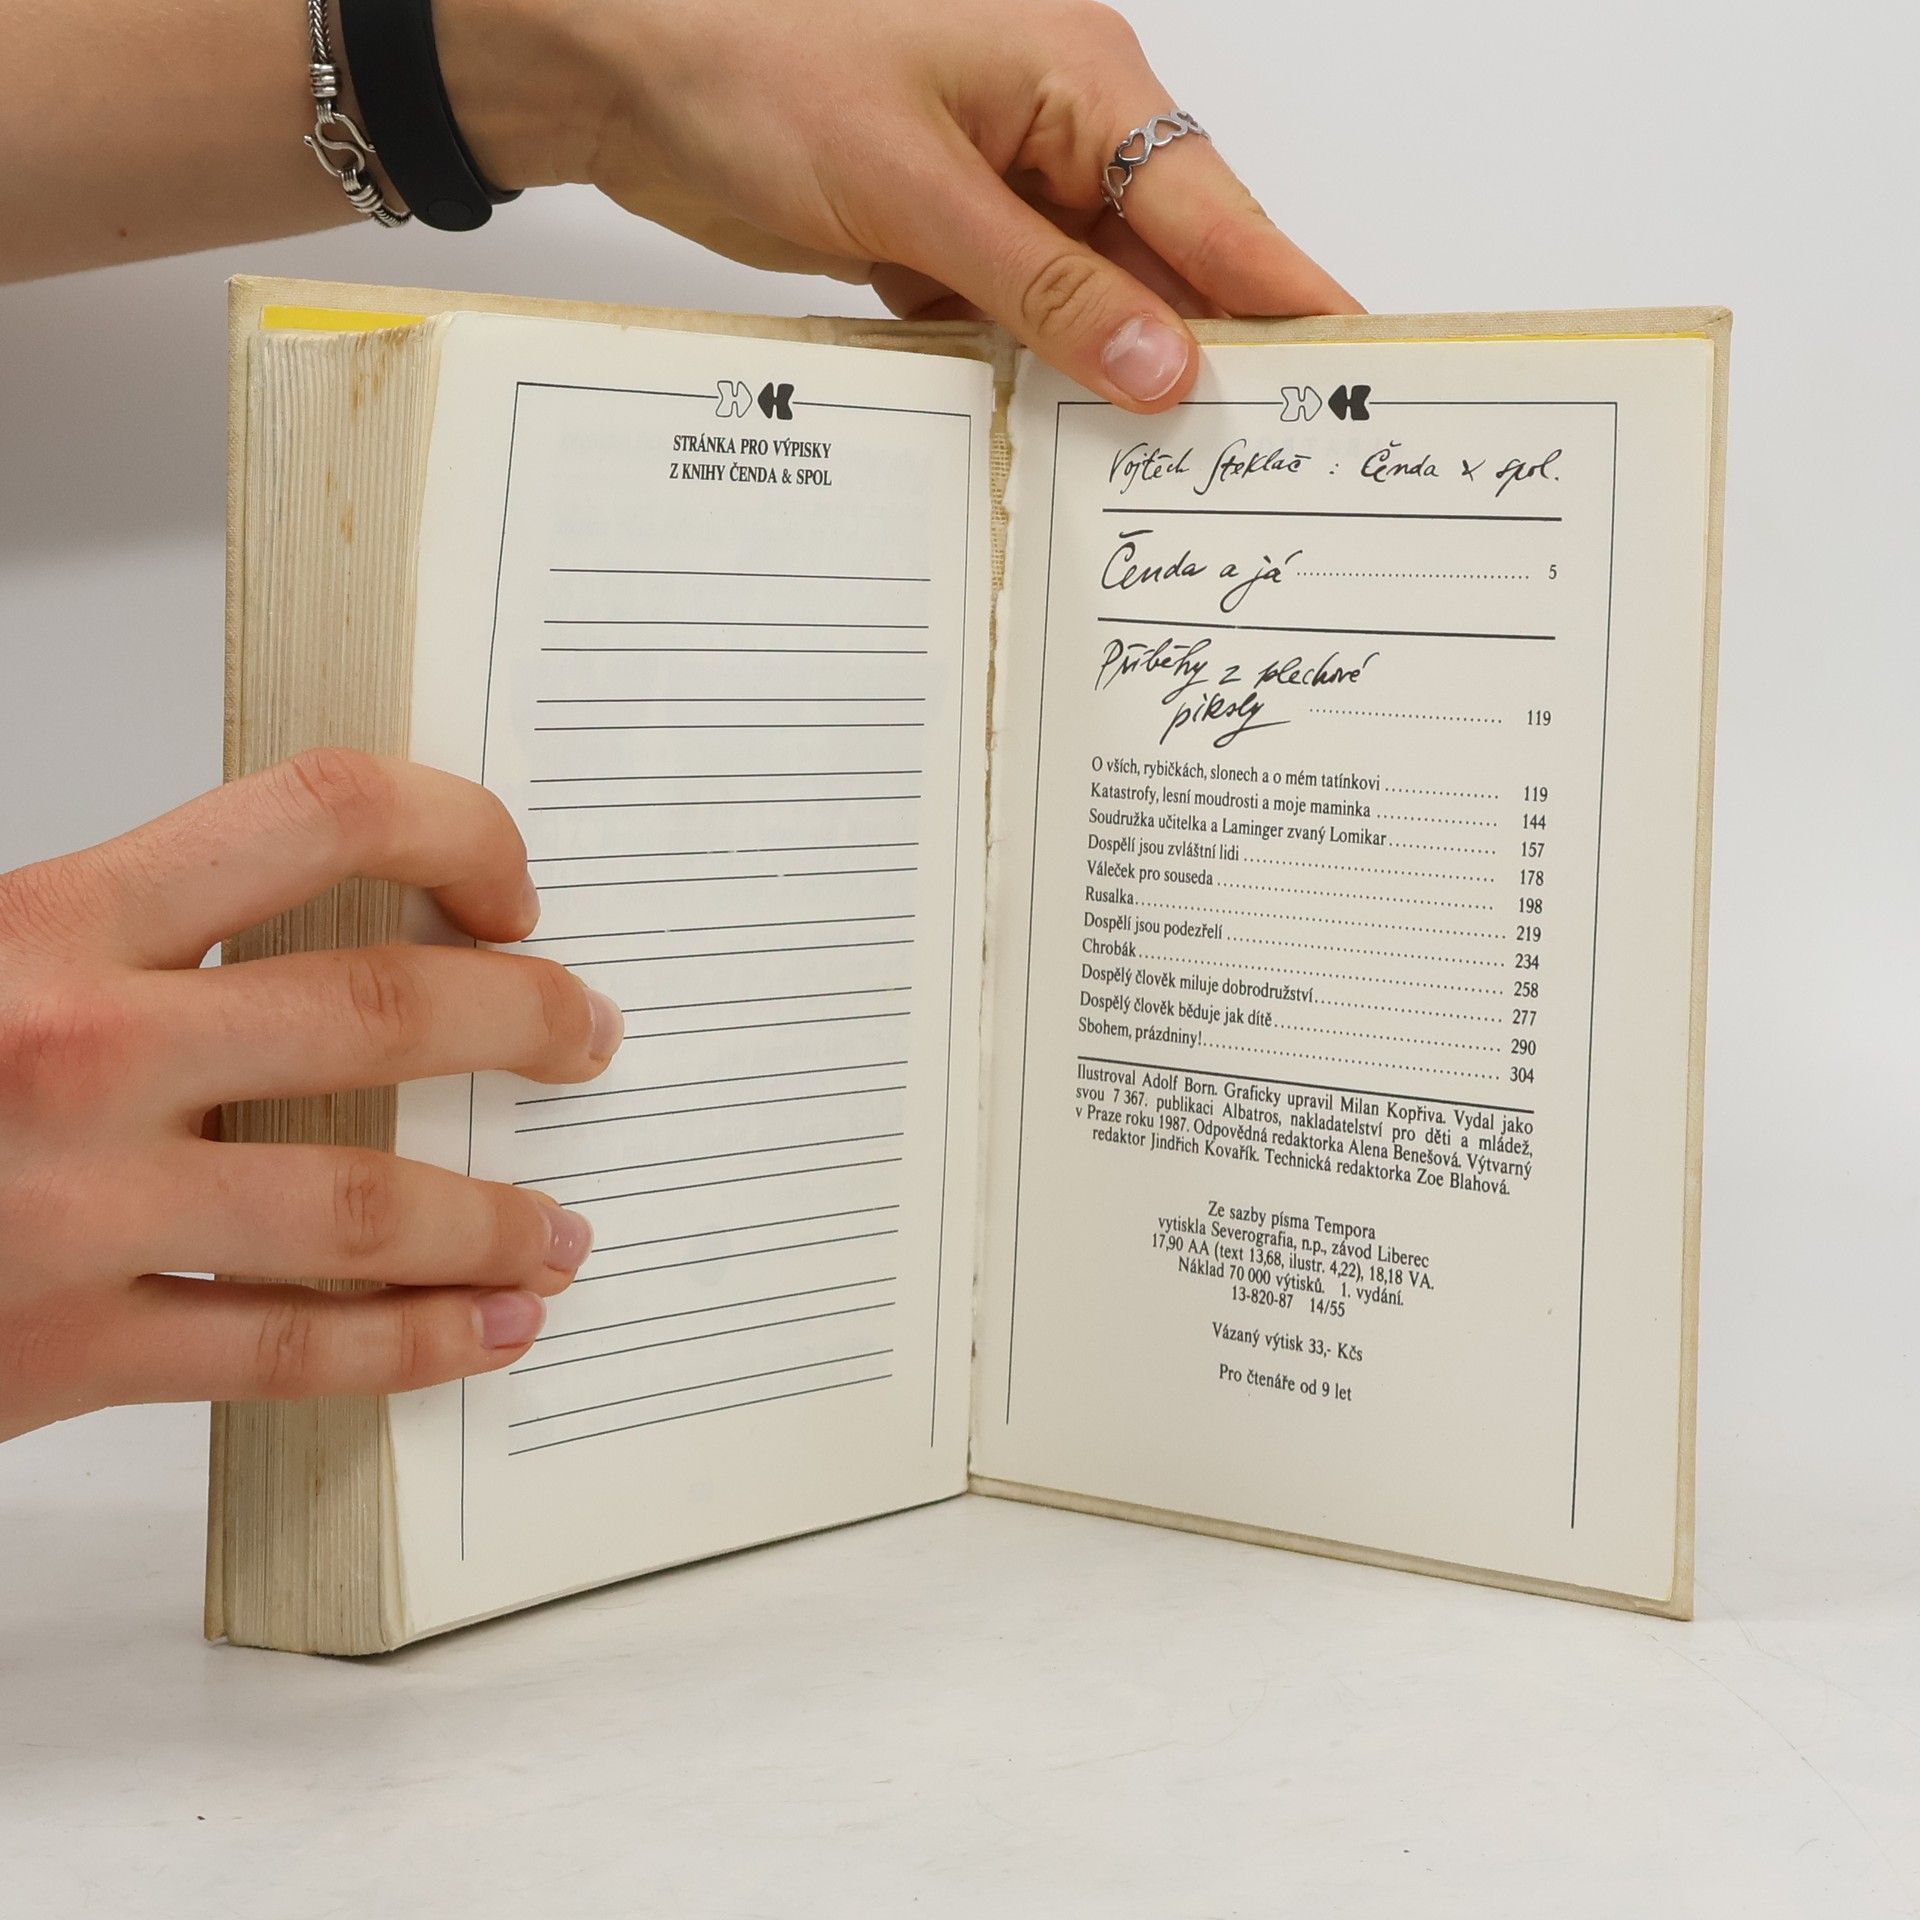 STRÁNKA PRO VÝPISKY
Z KNIHY ČENDA & SPOL
Vojtěch Steklač : Čenda & spol.
Čenda a já ........ 5
Příběhy z plechové
piksly ........ 119
O vších, rybičkách, slonech a o mém tatínkovi ........ 119
Katastrofy, lesní moudrosti a moje maminka ........ 144
Soudružka učitelka a Laminger zvaný Lomikar ........ 157
Dospělí jsou zvláštní lidi ........ 178
Váleček pro souseda ........ 198
Rusalka ........ 219
Dospělí jsou podezřelí ........ 234
Chrobák ........ 258
Dospělý člověk miluje dobrodružství ........ 277
Dospělý člověk běduje jak dítě ........ 290
Sbohem, prázdniny! ........ 304
Ilustroval Adolf Born. Graficky upravil Milan Kopřiva. Vydal jako
svou 7 367. publikaci Albatros, nakladatelství pro děti a mládež,
v Praze roku 1987. Odpovědná redaktorka Alena Benešová. Výtvarný
redaktor Jindřich Kovařík. Technická redaktorka Zoe Blahová.
Ze sazby písma Tempora
vytiskla Severografia, n.p., závod Liberec
17,90 AA (text 13,68, ilustr. 4,22), 18,18 VA.
Náklad 70 000 výtisků. 1. vydání.
13-820-87 14/55
Vázaný výtisk 33,- Kčs
Pro čtenáře od 9 let